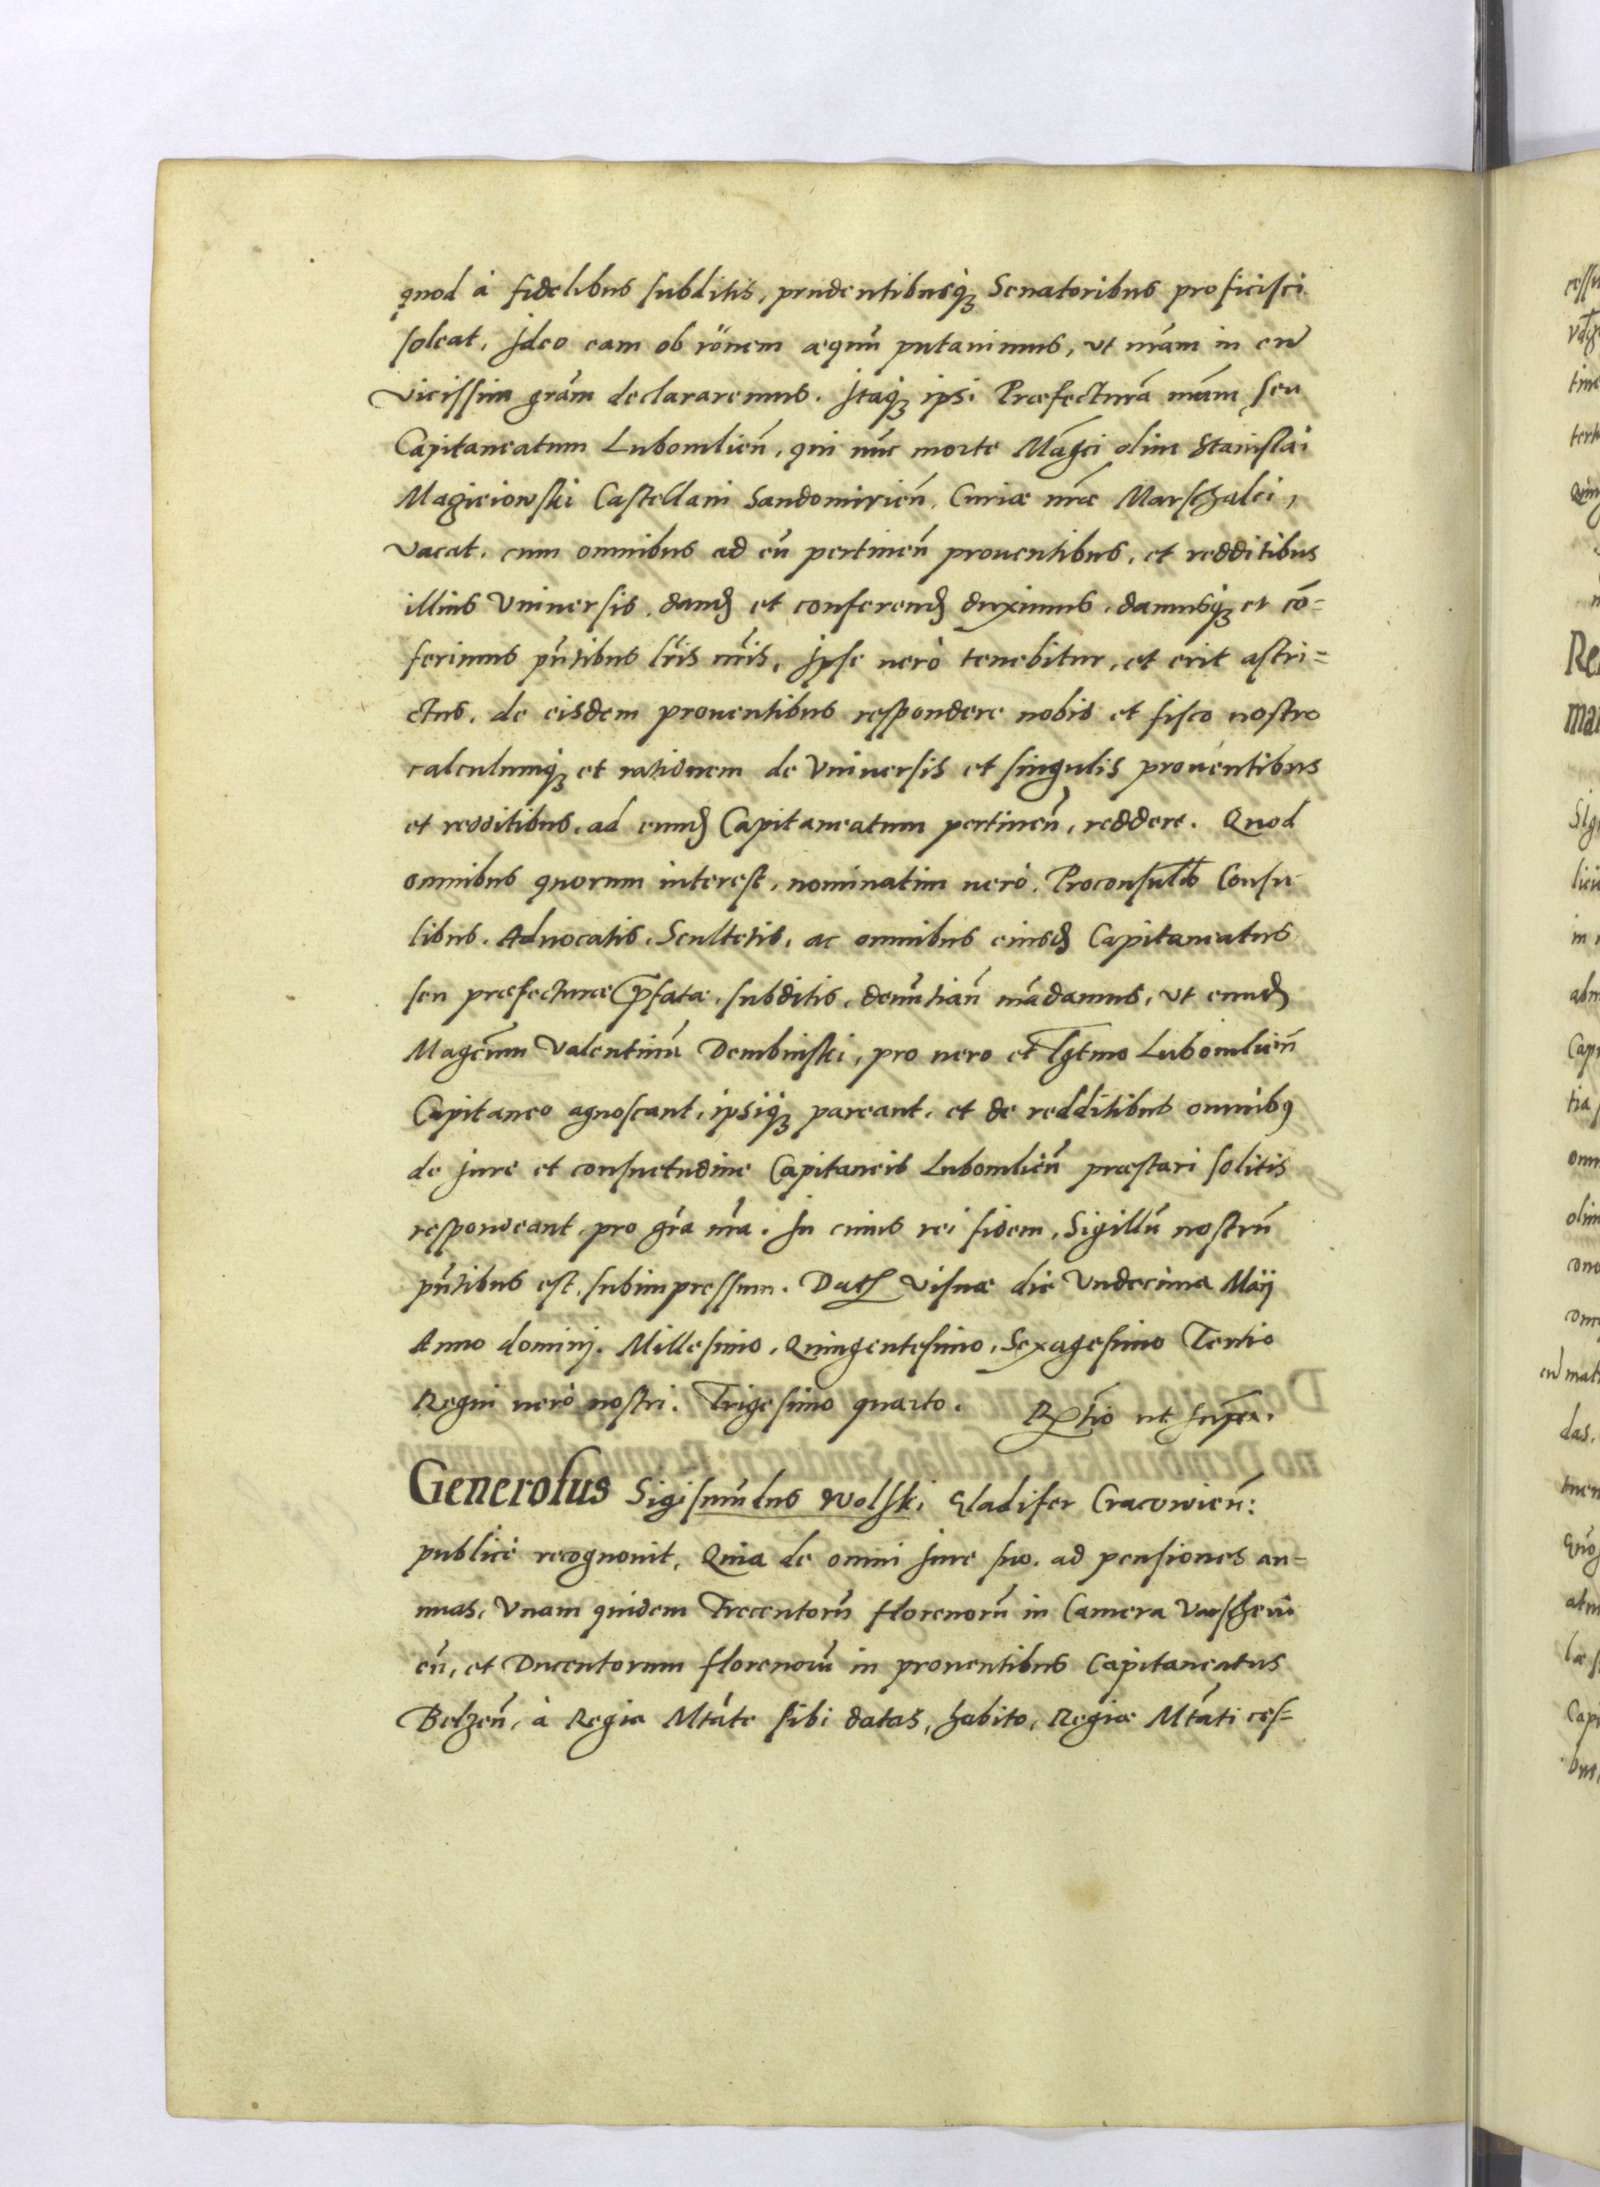 quod à fidelibus subditis, prudentibusq; Senatoribus proficisci
soleat. Ideo eam ob rõnem aequũ putavimus, ut nr̃am in eũ
vicissim grãm declararemus. Itaq; ipsi Præfecturã nr̃am seu
Capitaneatum Lubomlieñ, qui nũc morte Mãgci olim Stanislai
Magieiowski Castellani Sandomirieñ, Curiæ nr̃æ Marschalci,
vacat, cum omnibus ad eũ pertineñ proventibus, et redditibus
illius Universis, dand et conferend duximus, damusq; et cõ=
ferimus pñtibus lr̃is nr̃is. Ipse verò tenebitur, et erit astri=
ctus, de eisdem proventibus respondere nobis et fisco nostro
calculumq; et rationem de Universis et singulis proventibus
et redditibus, ad eund Capitaneatum pertineñ, reddere. Quod
omnibus quorum interest, nominatim verò, Proconsulib Consu
libus, Advocatis, Scultetis, ac omnibus eiusd Capitaneatus
seu præfecturæ pfatæ, subditis, denũtiañ mãdamus, ut eund
Magcũm Valentinũ Dembinski, pro vero et lgtmo Lubomlieñ
Capitaneo agnoscant, ipsiq; pareant, et de redditibus omnibꝯ
de Jure et consuetudine Capitaneis Lubomlieñ præstari solitis
respondeant pro grã nr̃a. In cuius rei fidem, Sigillũ nostrũ
pñtibus est subimpressum. Dat Visnæ die Undecima Maij
Anno dominj. Millesimo, Quingentesimo, Sexagesimo Tertio
Regni verò nostri. Trigesimo quarto. Rtio ut supra.
Generosus Sigismũdus Wolski Gladifer Cracovieñ:
publicè recognovit, Quia de omni Jure suo, ad pensiones an=
nuas, Unam quidem Trecentorũ florenorũ in Camera Varschevi
eñ, et Ducentorum florenorũ in proventibus Capitaneatus
Belzeñ, à Regia Mtãte sibi datas, habito, Regiæ Mtãti ces=